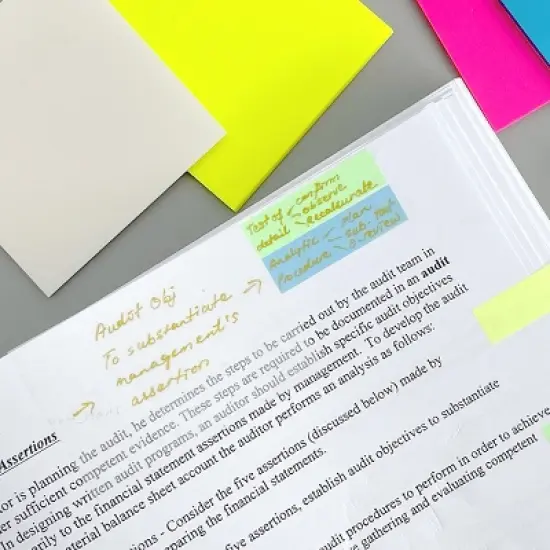 Test of confirm
detail observe
Recalcurate
Analytic plan
Procedure sub. test
o-review
Audit Obj
To substantiate
management's
assertion
Assertions
or is planning the audit, he determines the steps to be carried out by the audit team in
er sufficient competent evidence. These steps are required to be documented in an audit
In designing written audit programs, an auditor should establish specific audit objectives
arily to the financial statement assertions made by management. To develop the audit
aterial balance sheet account the auditor performs an analysis as follows:
ions - Consider the five assertions (discussed below) made by
eparing the financial statements.
five assertions, establish audit objectives to substantiate
audit procedures to perform in order to achieve
e gathering and evaluating competent